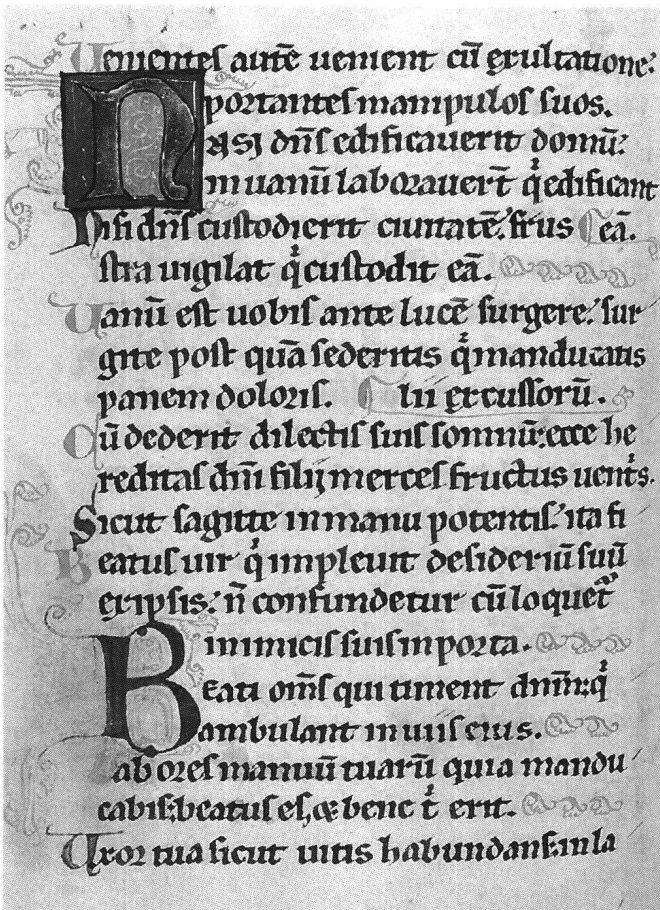 Uenientes autē uenient cū exultatione:
portantes manipulos suos.
Nisi dñs edificauerit domū:
in uanū laborauert̄ q̇ edificant
Nisi dñs custodierit ciuitatē: frus eā.
stra uigilat q̇ custodit eā.
Uanū est uobis ante lucē surgere: sur
gite post quā sederitis q̇ manducatis
panem doloris. lii excussorū.
Cū dederit dilectis suis somnū: ecce he
reditas dñi filij merces fructus uentˢ.
Sicut sagitte in manu potentis: ita fi
Beatus uir q̇ impleuit desideriū suū
ex ipsis: n̄ confundetur cū loquet᷑
inimicis suis in porta.
Beati om̄s qui timent dnm̄: q̇
ambulant in uiis eius.
Labores manuū tuarū quia mandu
cabis: beatus es, & bene t̄ erit.
Uxor tua sicut uitis habundans: in la